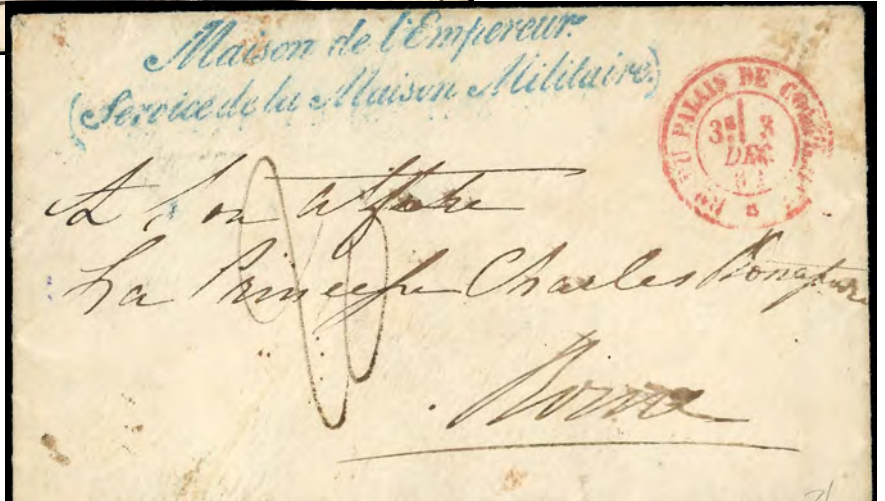 Maison de l'Empereur.
(Service de la Maison Militaire)
BAU DU PALAIS DE COMPIEGNE
3E 3
DEC.
61
A Son Altesse
La Princesse Charles Bonaparte
Rome